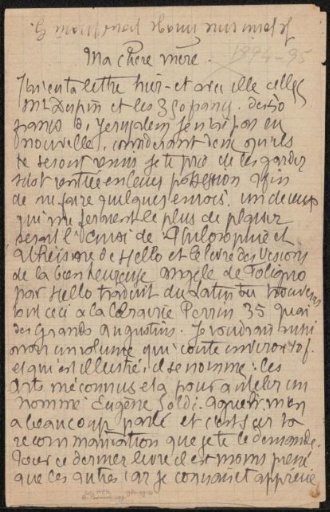 Ma chère mère.
1894-95
J'ai eu ta lettre hier et avec elle celles
Mr Dupin et les 3 Company. de 50
francs B. Jerusalem je n'ai pas eu
de nouvelles, considerant donc qu'ils
te seront venus je te prie de les garder
sitot rentrée en leur possession afin
de me faire quelques envois. un de ceux
qui me feraient le plus de plaisir
serait l'envoi de Philosophie et
atheisme de Hello et le livre des Visions
de la bienheureuse Angele de Foligno
par Hello traduit du latin tu trouveras
tout ceci a la librairie Perrin 35 quai
des Grands Augustins. Je voudrais aussi
avoir un volume qui coute environ
et qui est illustré, il se nomme: les
Arts méconnus et a pour auteur un
nommé Eugène Soldi. m'en
a beaucoup parlé et c'est sur sa
recommandation que je te le demande.
Pour ce dernier livre il est moins pressé
que les autres car je connais et apprecie